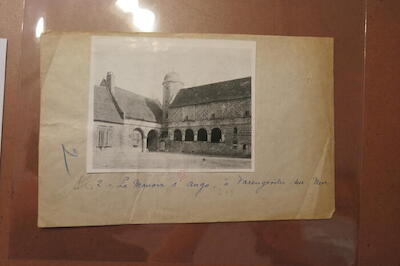 2. Le Manoir d'ango, à Varengeville sur Mer